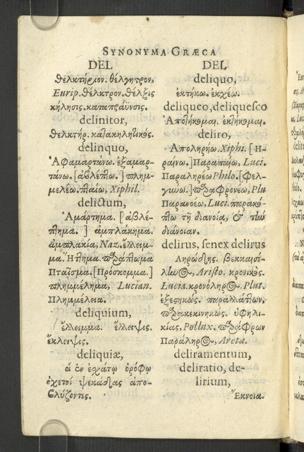 SYNONYMA GRÆCA
DEL
θελκτήριον. θέλγητρον.
Eurip. θέλκτρον. θέλξις
κήλησις. καταπράϋνσις.
delinitor,
θελκτὴρ. κατακηλητικός.
delinquo,
Ἀφαμαρτάνω. ἐξαμαρ-
τάνω. [ἀβλέπω.] πλημ-
μελέω. πταίω. Xiphil.
delictum,
Ἁμάρτημα. [ἀβλέ-
πημα.] ἀμπλάκημα.
ἀμπλακία, Naz.
μα. Ἥττημα. παράπτωμα
Πταῖσμα. [Πρόσκομμα.]
πλημμέλημα, Lucian.
Πλημμέλεια.
deliquium,
ἔλλειμμα. ἔλλειψις.
ἔκλειψις.
deliquiæ,
αἱ ἐν ἐσχάτῳ ὀρόφῳ
ὀχετοὶ ψεκάδας ἀπο-
βλύζοντες.
DEL.
deliquo,
ἐκτήκω. ἐκχέω.
deliqueo, deliquesco
Ἀποτήκομαι. ἐκτήκομαι.
deliro,
Ἀποληρέω. Xiphi. [Λη-
ραίνω.] Παραπαίω, Luci.
Παραληρέω Philo. [Φελ-
γύνω.] παραφρονέω, Plu
Παρακούω. Luci. παρακό-
πτω τὴ διανοία, & τὴν
διάνοιαν.
delirus, senex delirus
Ληρώδης. Βεκκεσέ-
ληνος, Aristo. κρονικός.
Lucia. κρονόληρος. Plut.
ἐξεστηκώς. παραπαίων.
παρακεκινηκώς. ὑφηλι-
κίας, Pollux. παράφρων
Παράληρος, Aretæ.
deliramentum,
deliratio, de-
lirium,
Ἔκνοια.